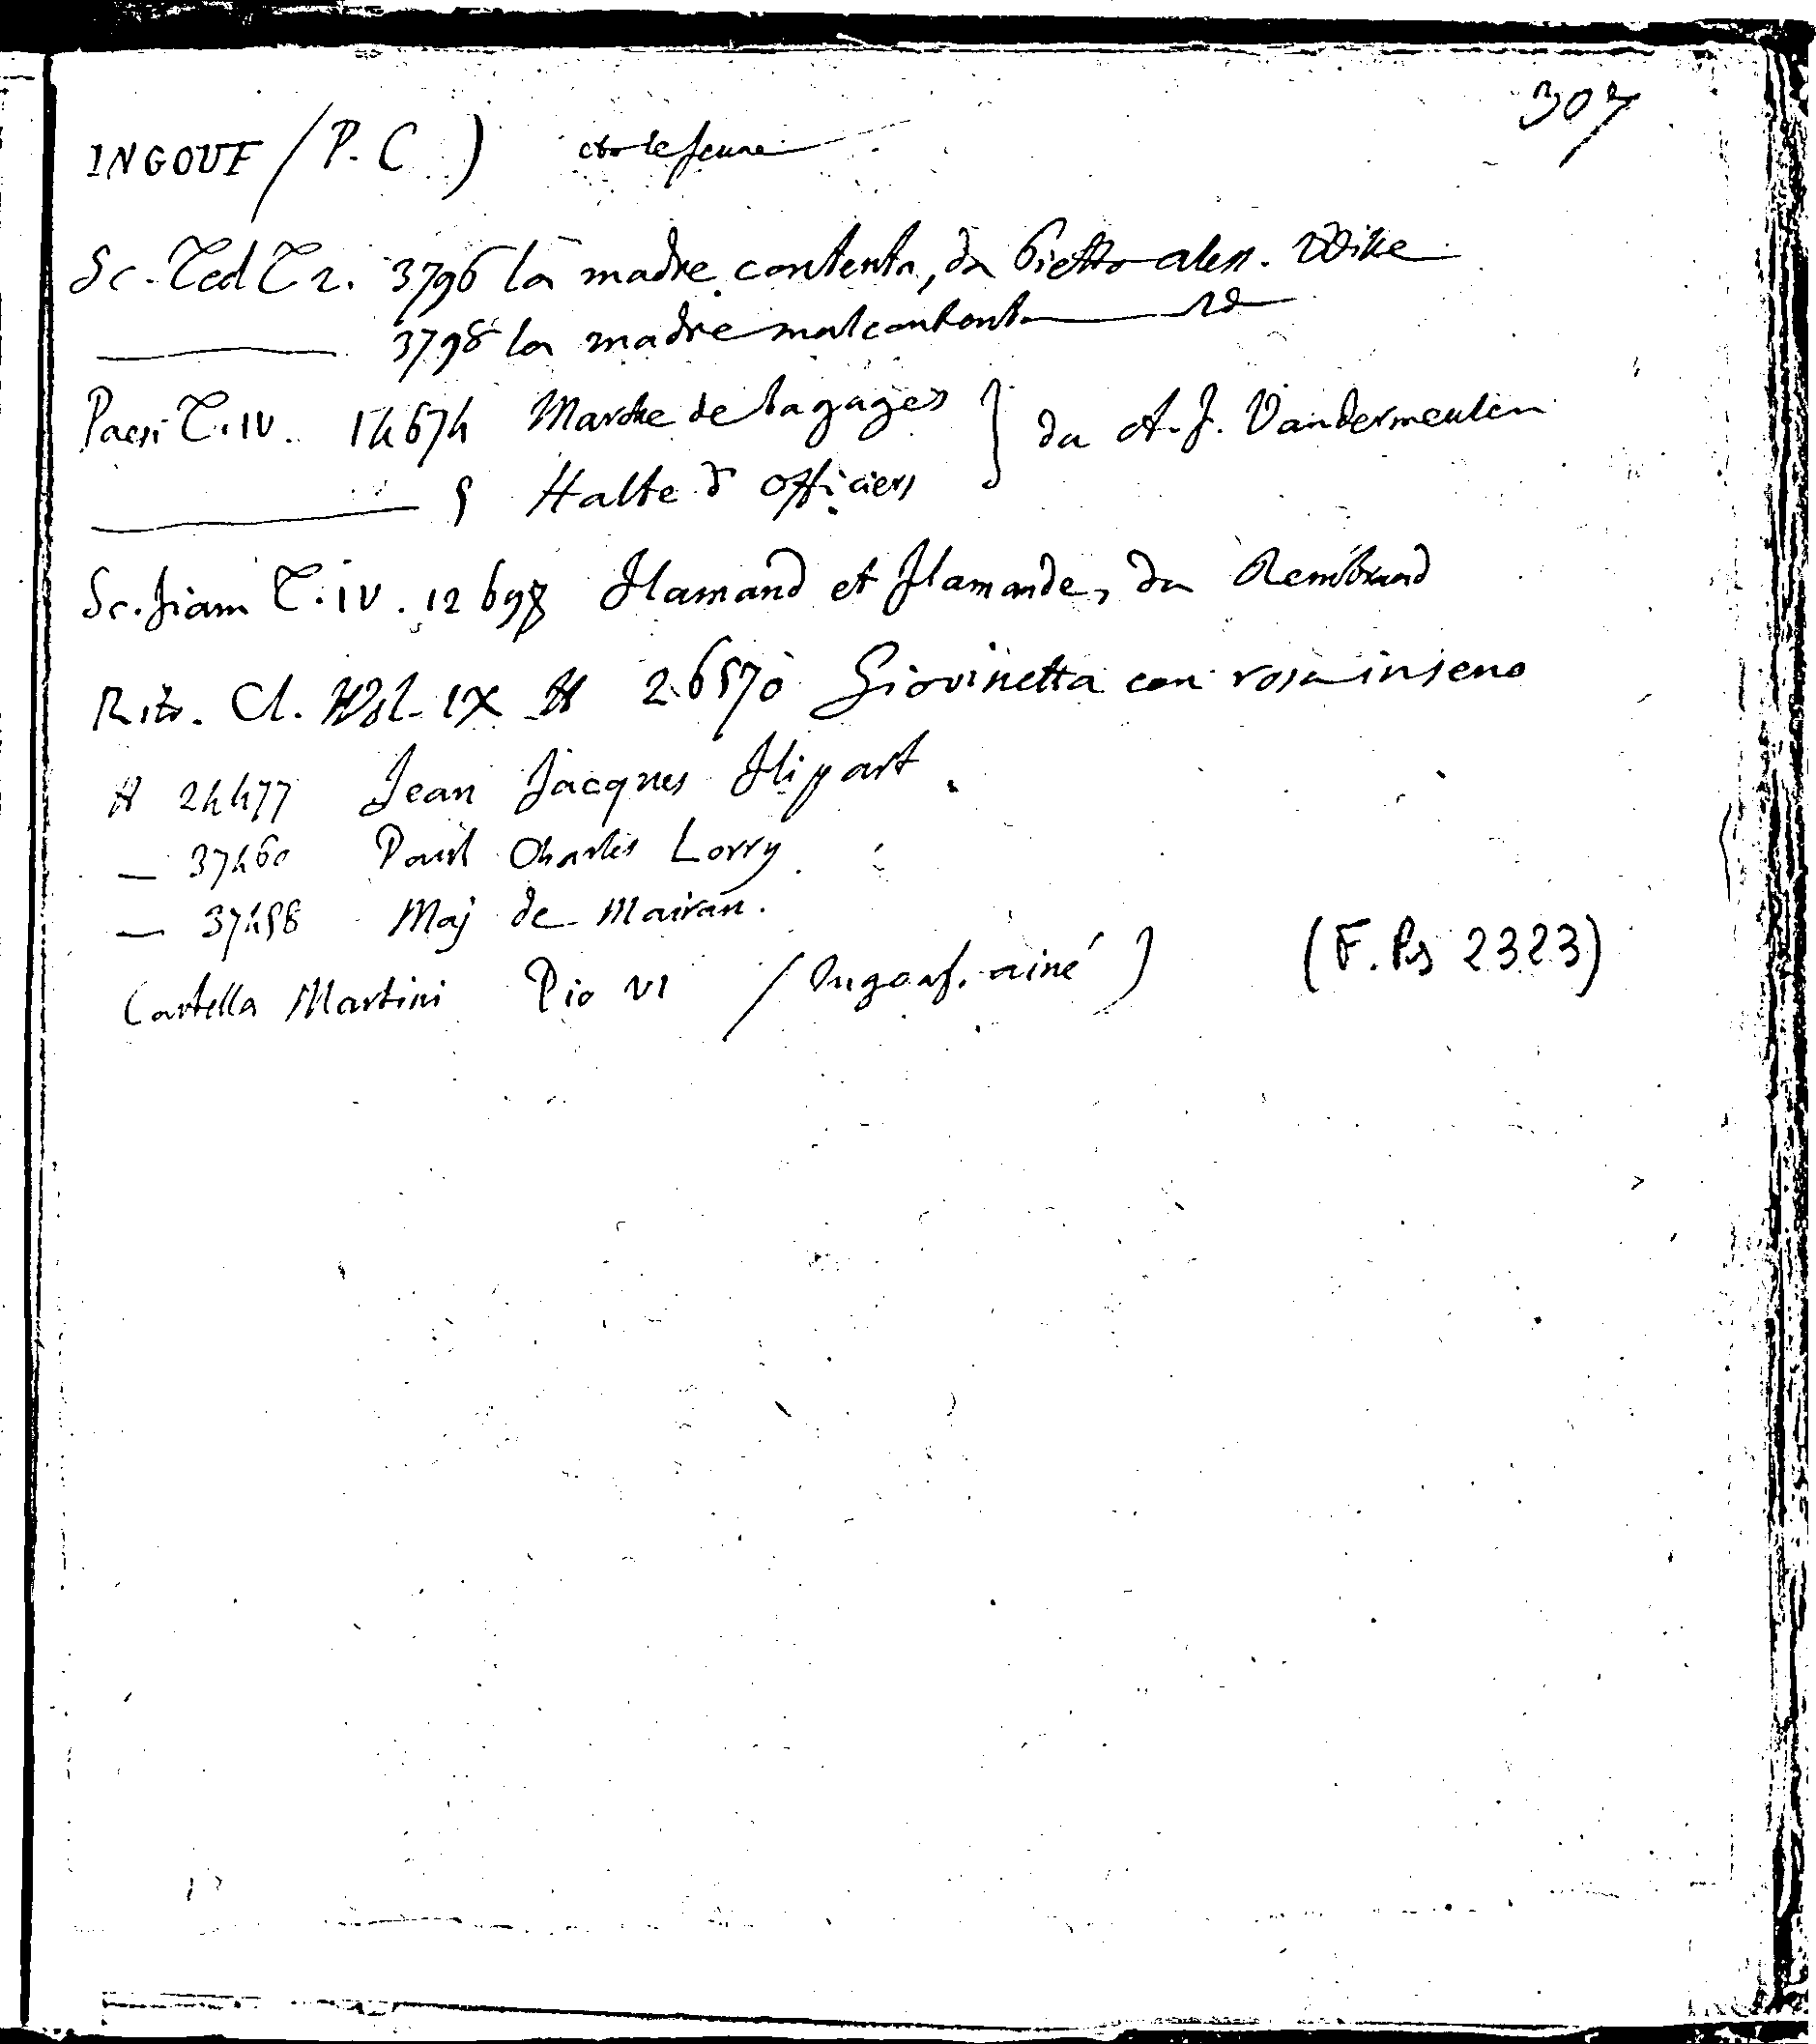 307
INGOUF (P. C) detto le jeune
Sc. Ted T 2. 3796 la madre contenta, da Pietro Aless. Wille
3798 la madre malcontenta id
Paesi T. IV. 14674 Marche de bagages } da A. F. Vandermeulen
5 Halte d'officiers
Sc. fiam T. IV. 12698 Flamand et Flamande, da Rembrand
Ritr. Cl. Vol. IX H 26570 Giovinetta con rosa in seno
H 24477 Jean Jacques Flipart.
— 37460 Paul Charles Lorry
— 37458 Maj de Mairan.
Cartella Martini Pio VI (Ingouf. ainé) (F. Ps 2323)